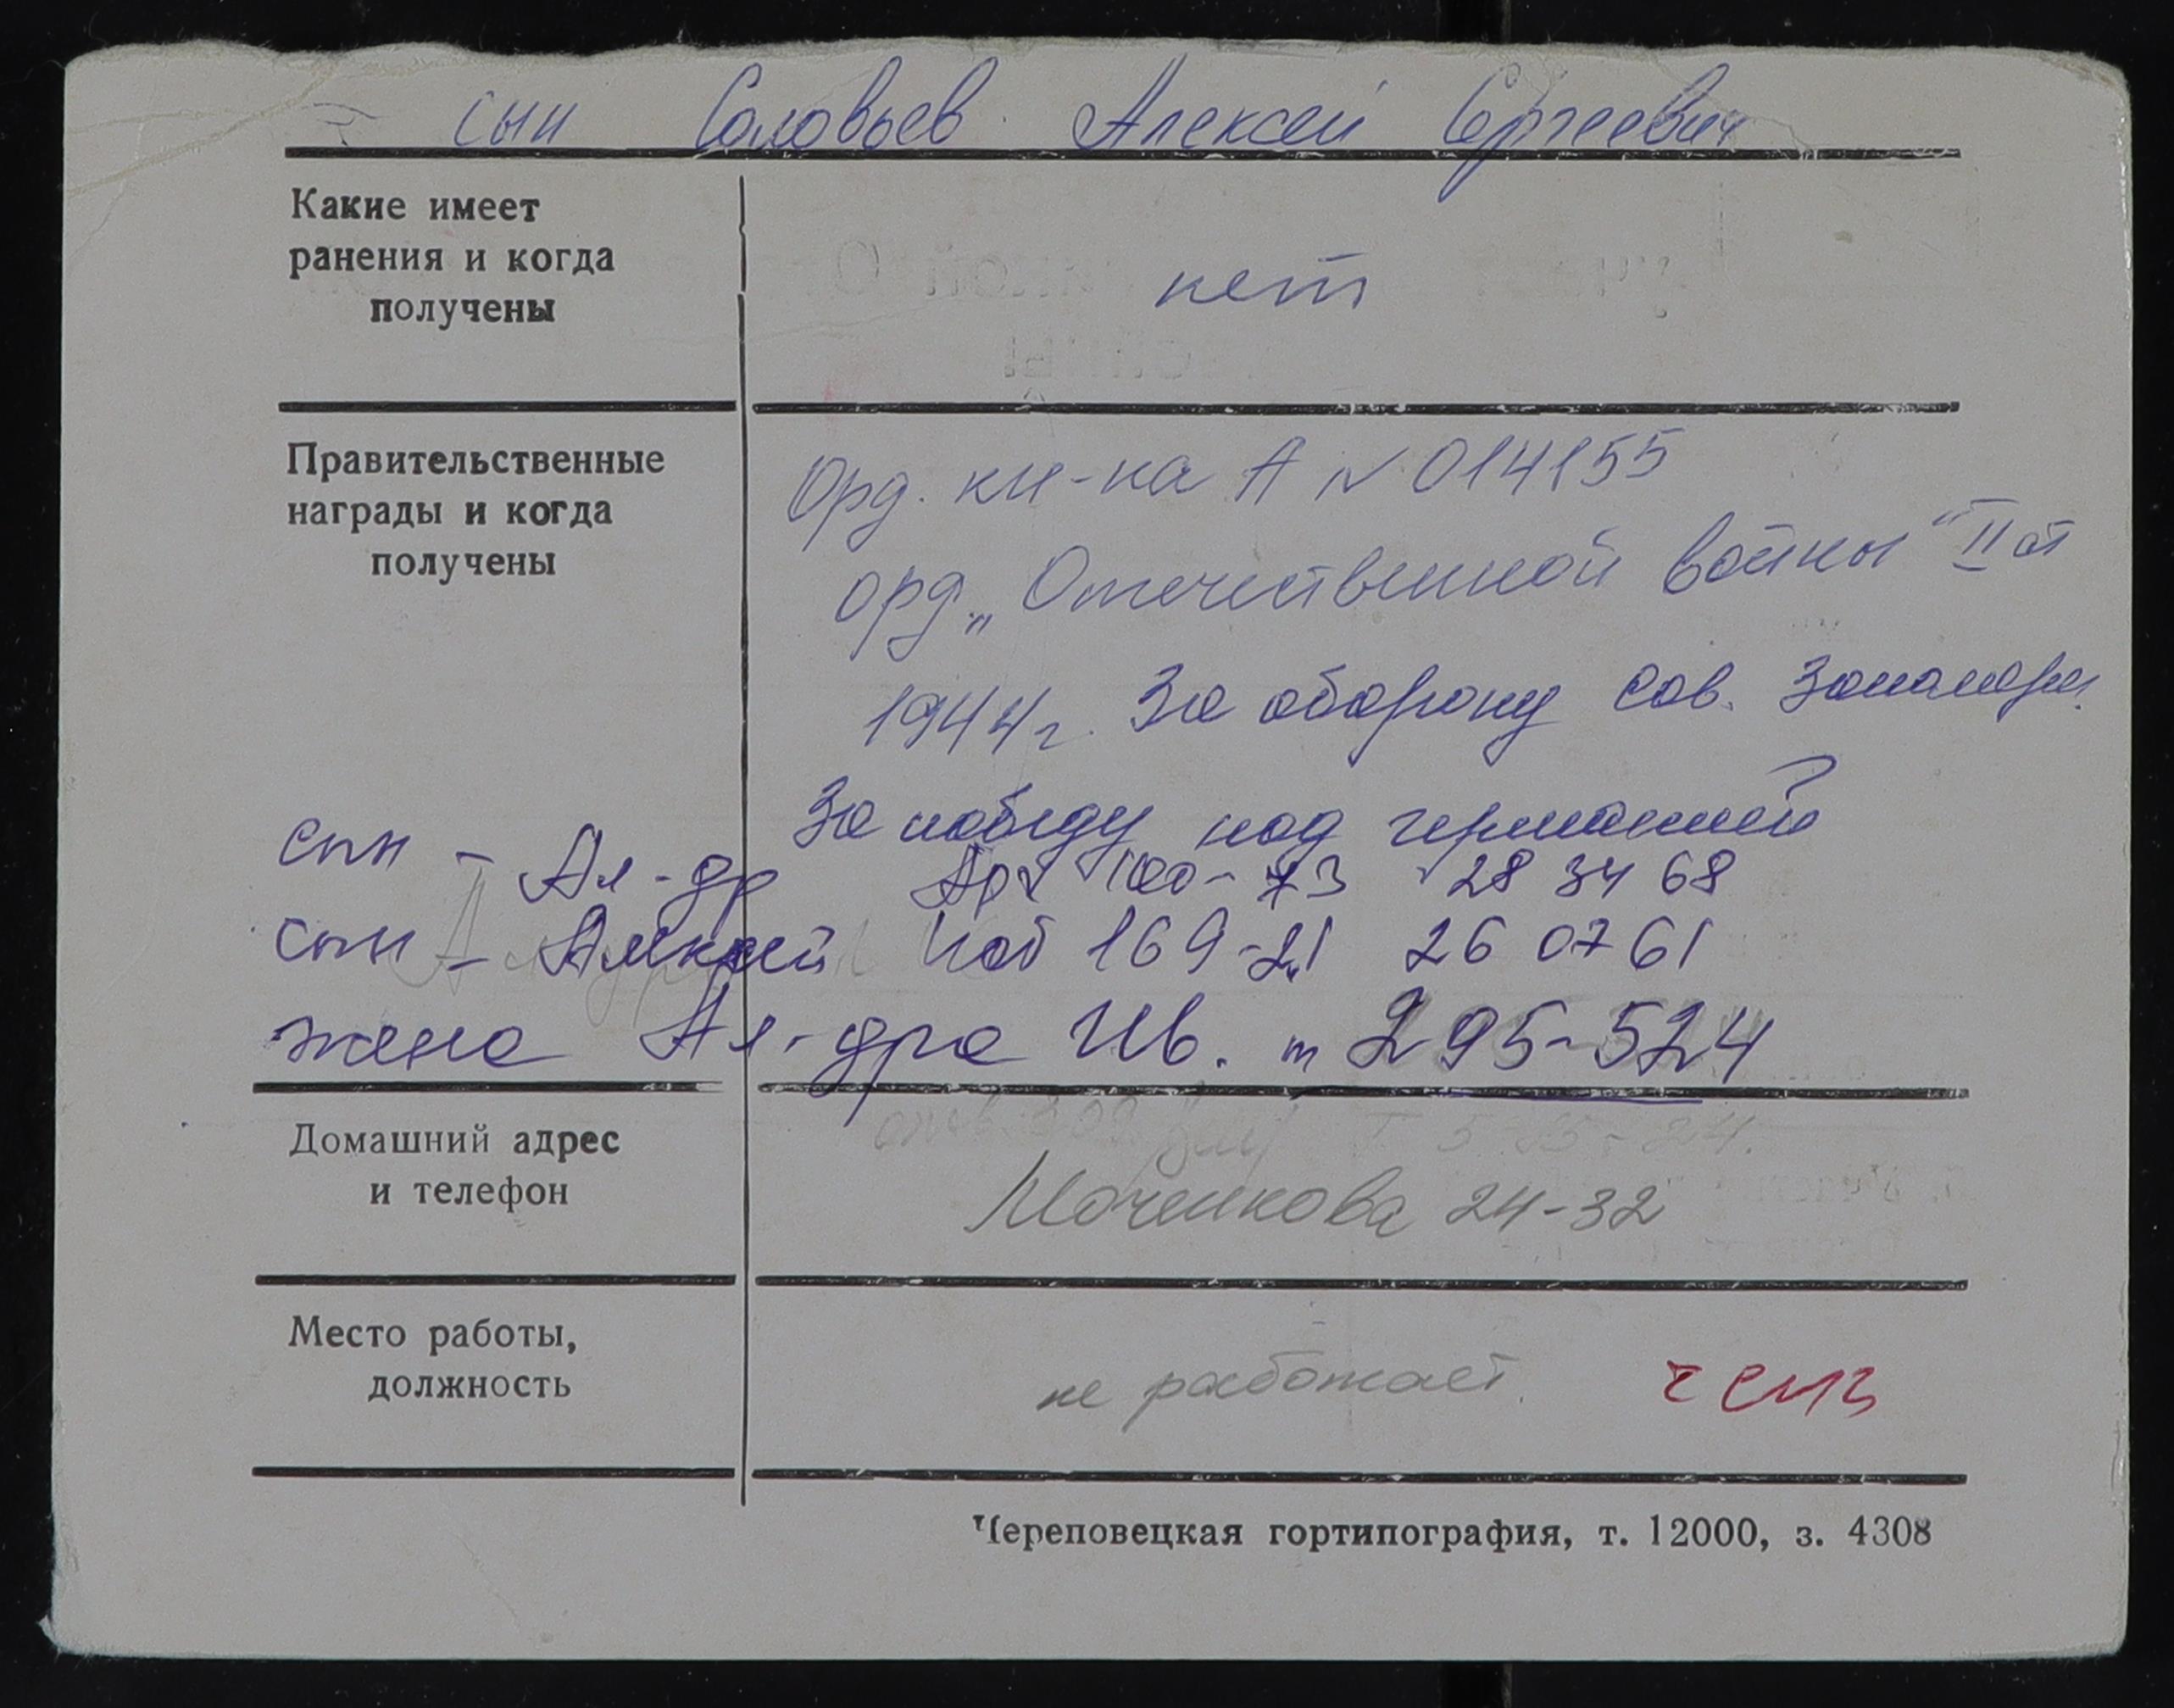 сын Соловьев Алексей Сергеевич
Какие имеет
ранения и когда
получены
нет
Правительственные
награды и когда
получены
Орд. кн-ка А № 014155
орд. „Отечественной войны" II ст
1944г. За оборону Сов. Заполярь.
За победу над германией
сын - Ал-др 100-73 28 34 68
сын - Алексей 169-21 26 07 61
жена Ал-дра Ив. т 295-524
Домашний адрес
и телефон
Моченкова 24-32
Место работы,
должность
не работает.
Череповецкая гортипография, т. 12000, з. 4308